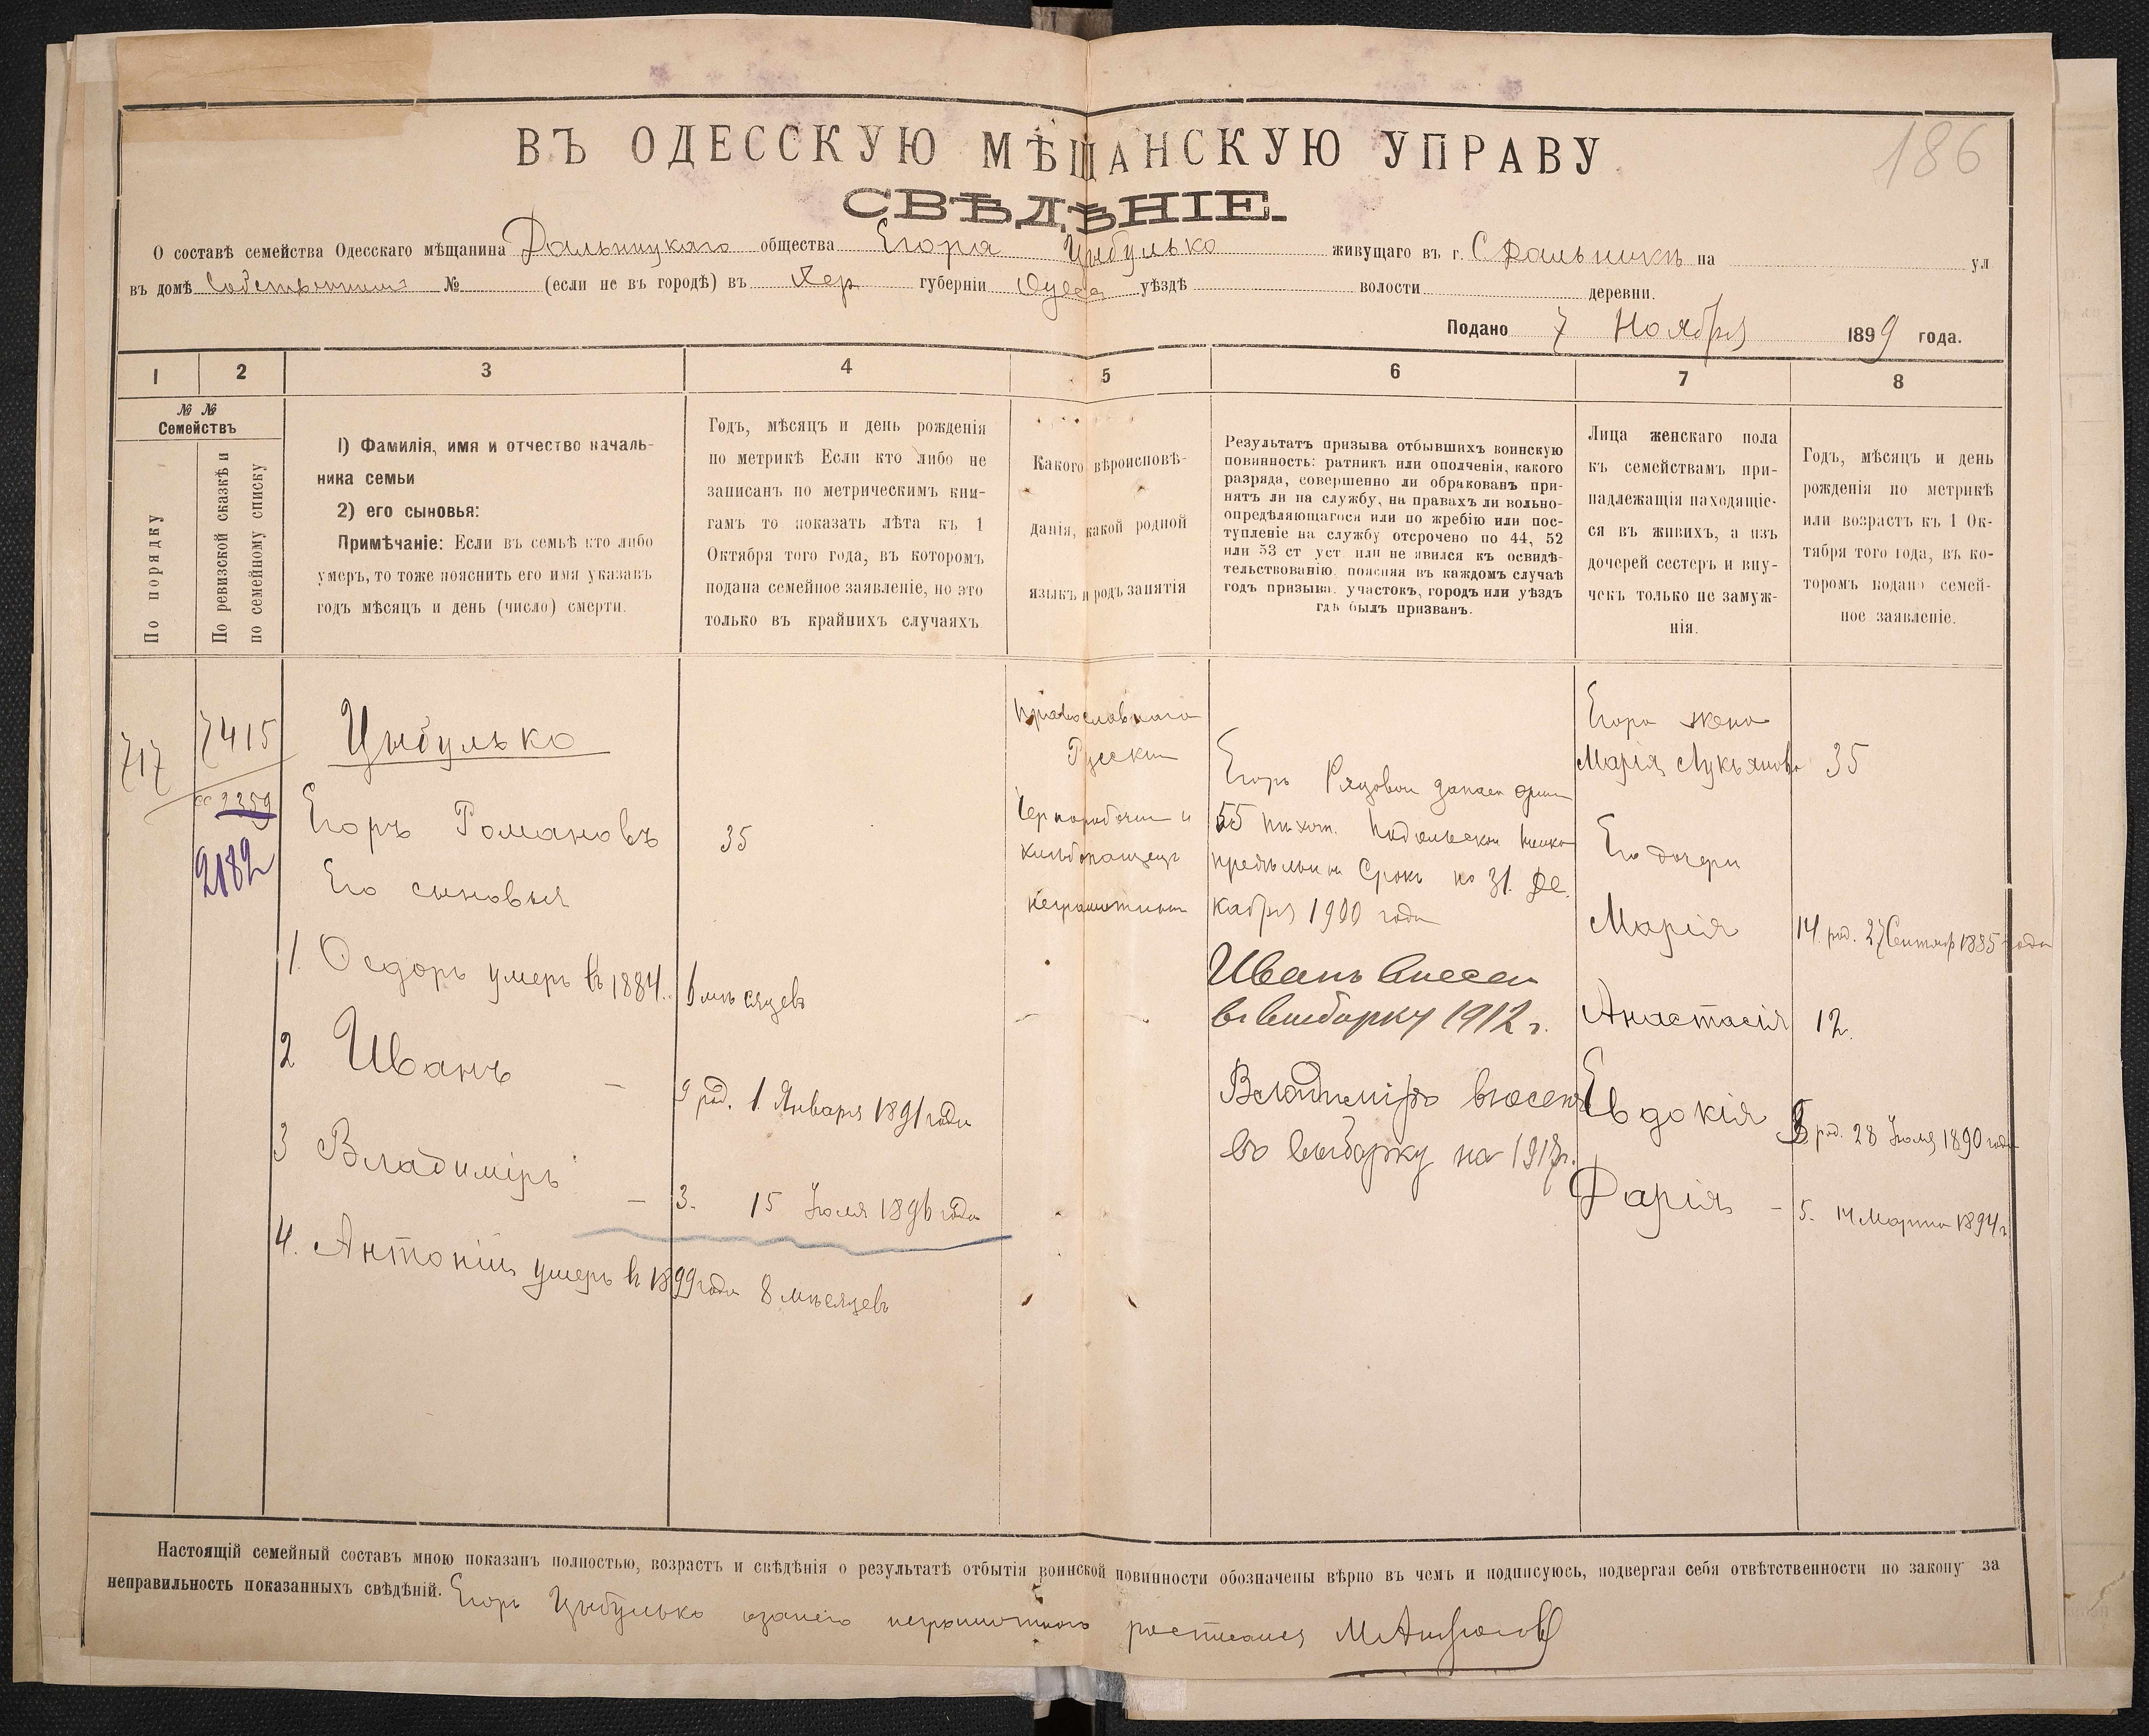 186
ВЪ ОДЕССКУЮ МѢЩАНСКУЮ УПРАВУ
СВѢДѢНІЕ.
О составѣ семейства Одесскаго мѣщанина Дальницкаго общества Егора Цыбулько живущаго въ г. С Дальникъ на ул
въ домѣ Собственномъ № (если не въ городѣ) въ Хер губерніи Одес уѣздѣ волости деревни.
Подано 7 Ноября 1899 года.
1 2 3 4 5 6 7 8
№ №
Семействъ
По порядку
По ревизской сказкѣ и
по семейному списку
1) Фамилія, имя и отчество началь-
ника семьи
2) его сыновья:
Примѣчаніе: Если въ семьѣ кто либо
умеръ, то тоже пояснить его имя указавъ
годъ мѣсяцъ и день (число) смерти.
Годъ, мѣсяцъ и день рожденія
по метрикѣ Если кто либо не
записанъ по метрическимъ кни-
гамъ то показать лѣта къ 1
Октября того года, въ которомъ
подана семейное заявленіе, но это
только въ крайнихъ случаяхъ
Какого вѣроисповѣ-
данія, какой родной
языкъ и родъ занятія
Результатъ призыва отбывшихъ воинскую
повинность: ратникъ или ополченія, какого
разряда, совершенно ли обракованъ при-
нятъ ли на службу, на правахъ ли вольно-
опредѣляющагося или по жребію или пос-
тупленіе на службу отсрочено по 44, 52
или 53 ст уст или не явился къ освидѣ-
тельствованію поясняя въ каждомъ случаѣ
годъ призыва, участокъ, городъ или уѣздъ
гдѣ былъ призванъ.
Лица женскаго пола
къ семействамъ при-
надлежащія находящіе-
ся въ живихъ, а изъ
дочерей сестеръ и вну-
чекъ только не замуж-
нія.
Годъ, мѣсяцъ и день
рожденія по метрикѣ
или возрастъ къ 1 Ок-
тября того года, въ ко-
торомъ подано семей-
ное заявленіе.
717
7415
2359
2182
Цыбулько
Егоръ Романовъ 35
Его сыновья
1. Ѳедоръ умеръ въ 1884. 6 мѣсяцевъ
2 Иванъ — 9 род. 1 Января 1891 года
3 Владиміръ — 3. 15 Іюля 1896 года
4. Антоній умеръ въ 1899 года 8 мѣсяцевъ
Православнаго
Русскій
Чернорабочій и
неграмотный
Егоръ Рядовой запаса арміи
55 пѣхот. Подольскаго полка
Срокъ по 31 Де-
кабря 1900 года
Иванъ внесен
въ выборку 1912 г.
Владиміръ внесенъ
въ выборку на 1917 г.
Егора жена
Марія Лукьянова 35
Его дочери
Марія 14 род. 27 Сентяб 1885 года
Анастасія 12.
Евдокія род. 28 Іюля 1890 года
Дарія — 5. 14 Марта 1894 г
Настоящій семейный составъ мною показанъ полностью, возрастъ и свѣдѣнія о результатѣ отбытія воинской повинности обозначены вѣрно въ чемъ и подписуюсь, подвергая себя отвѣтственности по закону за
неправильность показанныхъ свѣдѣній. Егоръ Цыбулько а за него неграмотнаго росписался